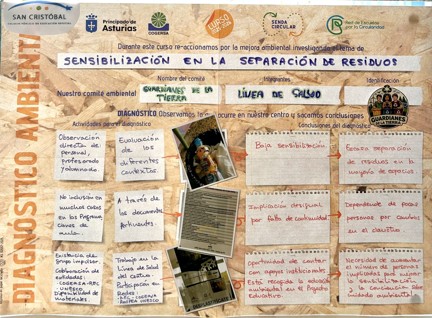 SAN CRISTÓBAL
Principado de
Asturias
COGERSA
CURSO
SENDA
CIRCULAR
Red de Escuelas
por la Circularidad
DIAGNÓSTICO AMBIENT
Durante este curso re-accionamos por la mejora ambiental investigando el tema de
SENSIBILIZACIÓN EN LA SEPARACIÓN DE RESIDUOS
Nombre del comité
Integrantes
Identificación
Nuestro comité ambiental
GUARDIANES DE LA
TIERRA
LÍNEA DE SALUD
GUARDIANES
DIAGNÓSTICO Observamos lo que ocurre en nuestro centro y sacamos conclusiones
Actividades para el diagnóstico
Conclusiones del diagnóstico
Observación
directa de
personal,
profesorado
y alumnado.
Evaluación
de los
diferentes
contextos.
Baja sensibilización
Escasa separación
de residuos en la
mayoría de espacios
No inclusión en
muchos casos
en las Programa
ciones de
aula.
A través de
los documentos
pertinentes.
Implicación desigual
por falta de continuidad.
Dependencia de pocas
personas por cambios
en el claustro.
Existencia de
grupo impulsor
Colaboración de
entidades:
COGERSA-REC
UNESCO
Disponibilidad de
materiales.
Trabajo en la
Línea de Salud
del centro.
Participación en
Redes:
REC - COGERSA
UNESCO
Oportunidad de contar
con apoyos institucionales
Está recogida la educación
ambiental en el Proyecto
Educativo.
Necesidad de aumentar
el número de personas
implicadas para mejorar
la sensibilización
y la concienciación